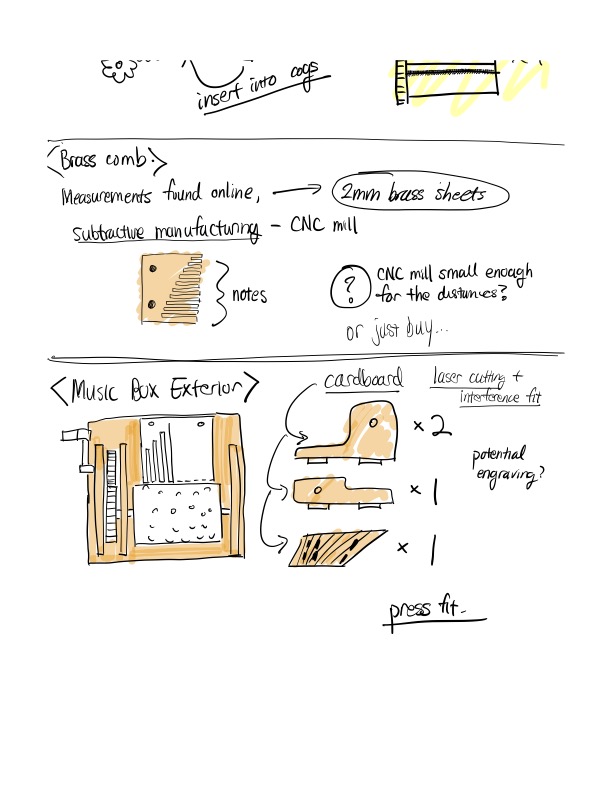 insert into cogs
<Brass comb:>
Measurements found online, → 2mm brass sheets
subtractive manufacturing - CNC mill
notes
? CNC mill small enough
for the distances?
or just buy...
<Music Box Exterior>
cardboard
laser cutting +
interference fit
×2
potential
engraving?
×1
×1
press fit.